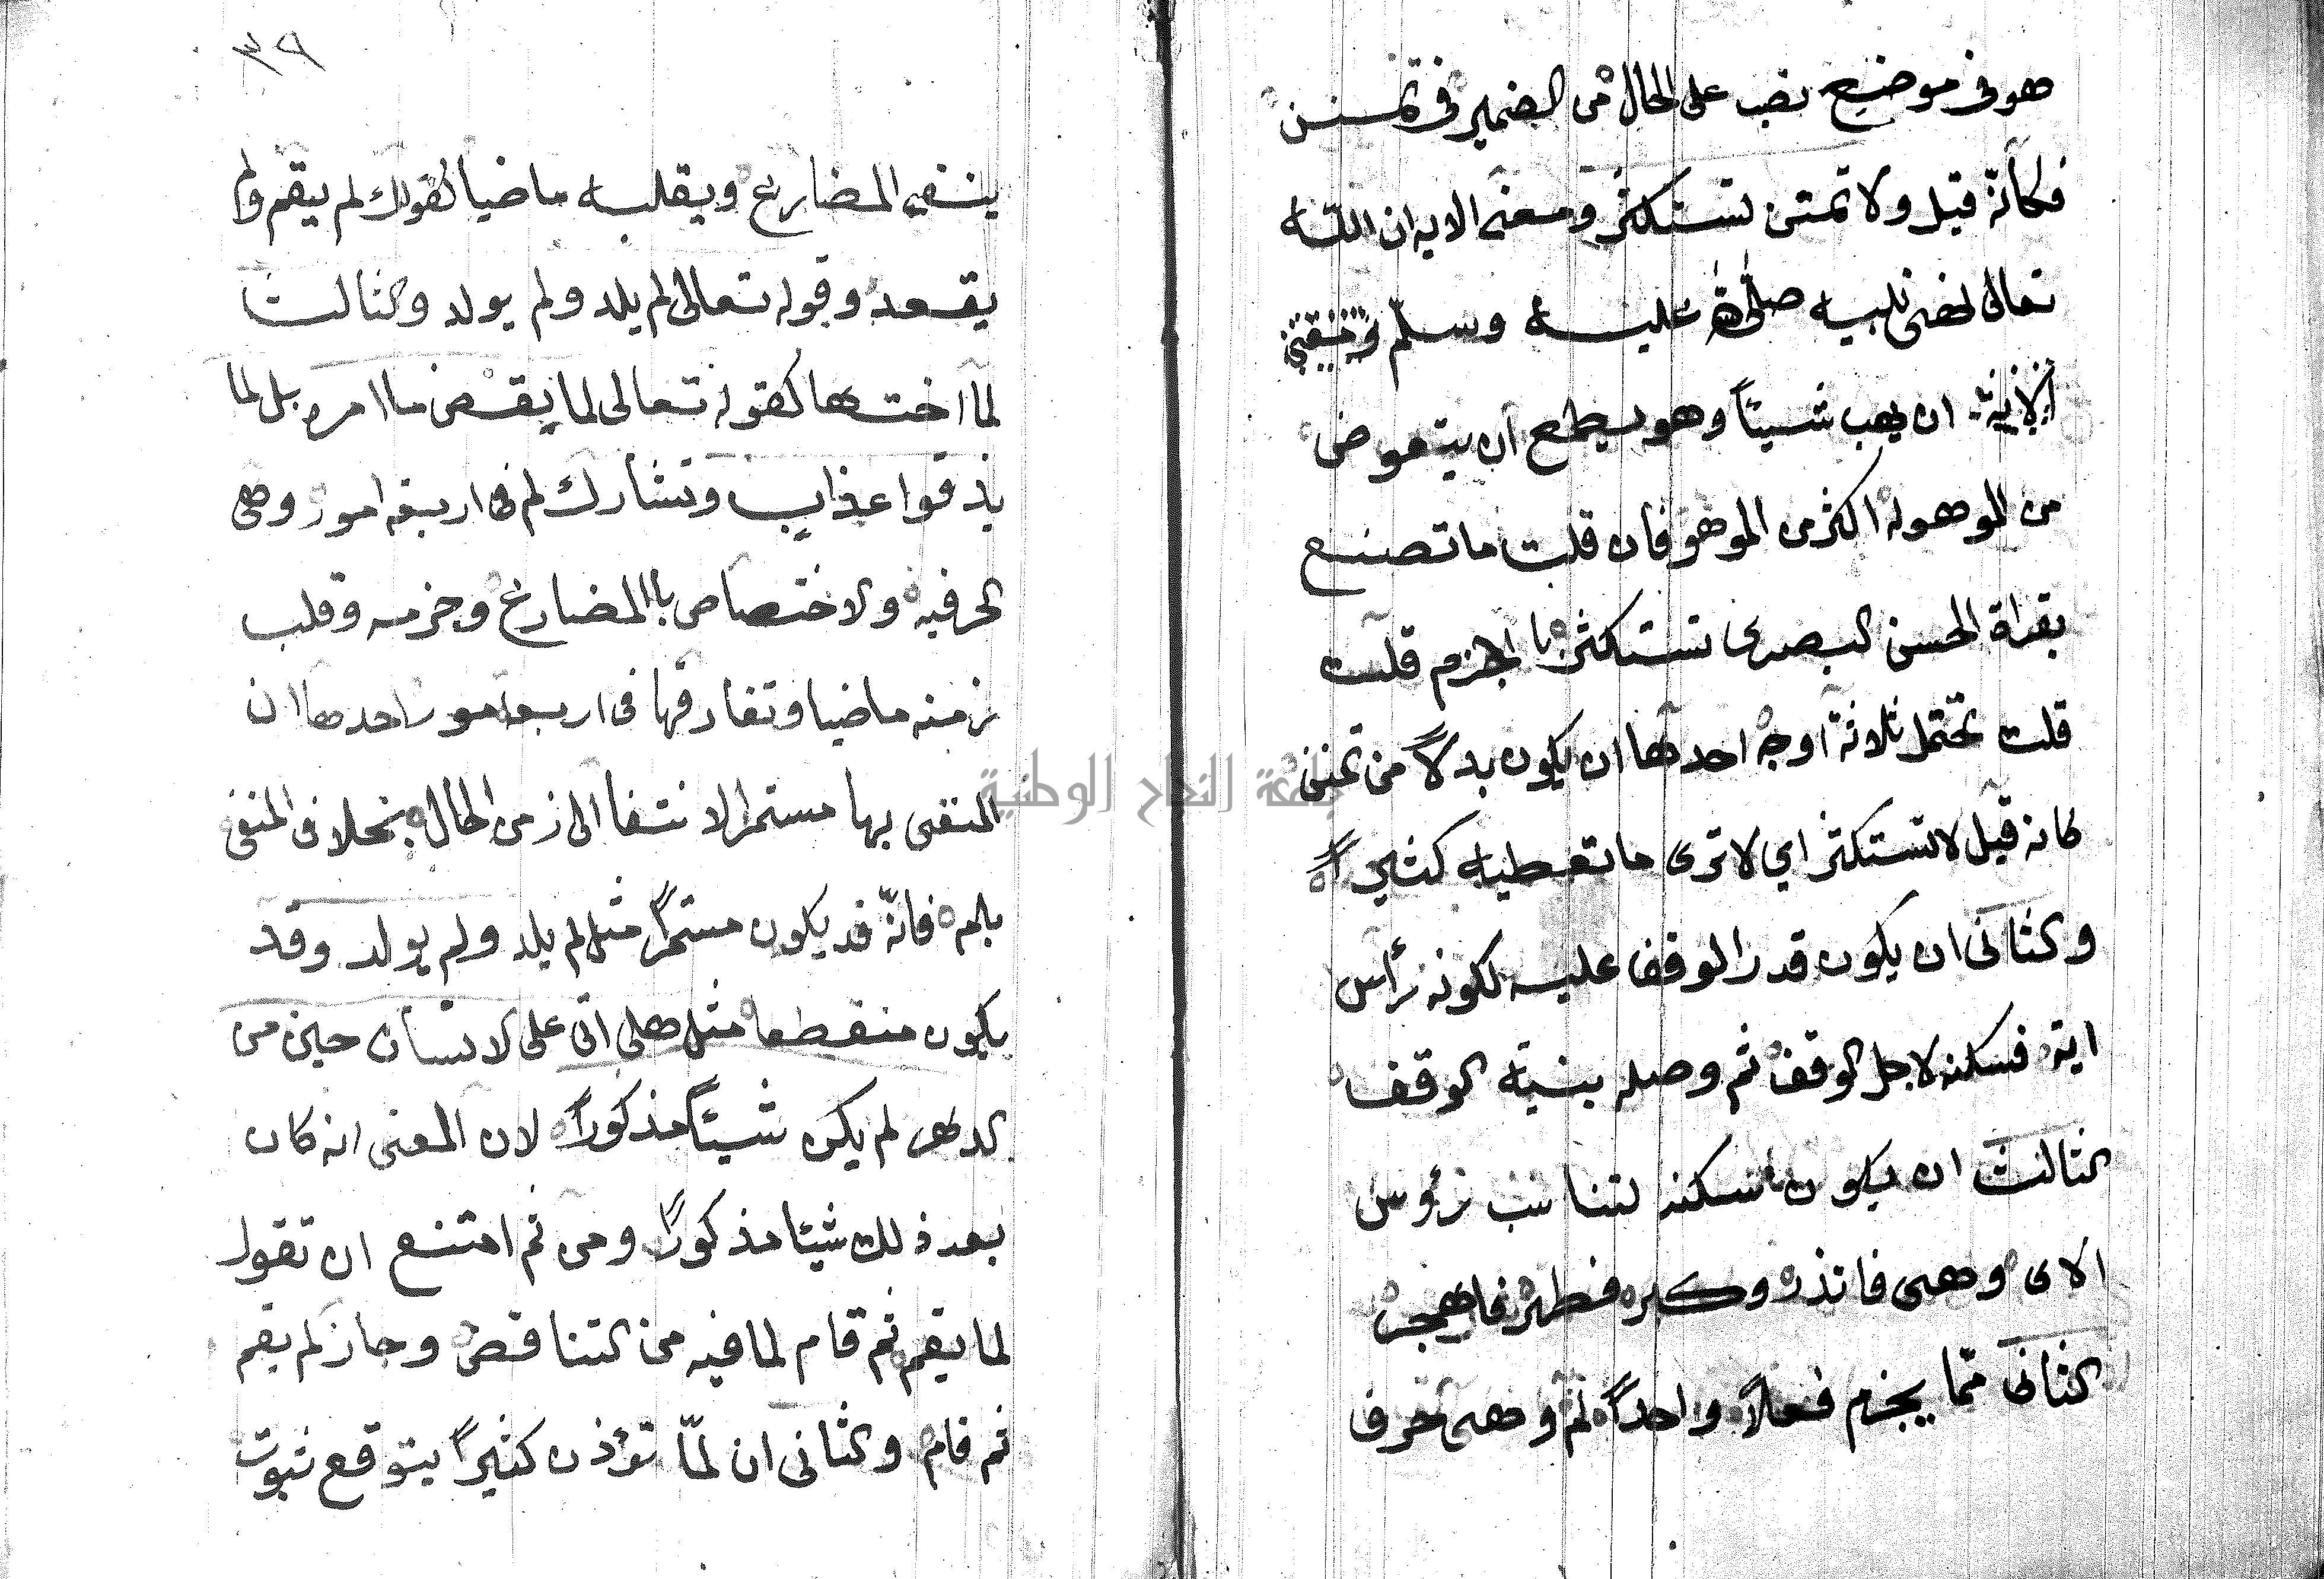 هو فى موضع نصب على الحال من الضمير فى تمنن
فكأنه قيل ولا تمنن تستكثر ومعنى الايه ان الله
تعالى نهى نبيه صلى الله عليه وسلم
ان يهب شيئاً وهو يطمع ان يتعوض
من الموهوله اكثر من الموهو فان قلت ما تصنع
بقراة الحسن البصرى تستكثر با الجزم قلت
قلت تحتمل ثلاثة اوجه احدها ان يكون بدلاً من تمنن
كانه قيل لا تستكثر اي لا ترى ما تعطيه كثيراً
والثانى ان يكون قدر الوقف عليه لكونه رأس
اية فسكنه لاجل الوقف ثم وصله بنية الوقف
الثالث ان يكون سكنه لتناسب رؤس
الاى وهى فانذر وكبر فطهر فاهجر
الثانى مما يجزم فعلاً واحداً لم وهى حرف
٣٩
ينفى المضارع ويقلبه ماضيا كقولك لم يقم ولم
يقعد وقوله تعالى لم يلد ولم يولد والثالث
لما اختها كقوله تعالى لما يقض ما امره بل لما
يذقوا عذاب وتشارك لم فى اربعه امور وهى
الحرفيه والاختصاص با المضارع وجزمه وقلب
زمنه ماضيا وتفارقها فى اربعة امور احدها ان
المنفى بها مستمر الانتفا الى زمن الحال بخلاف المنفى
بلم فانّه قد يكون مستمراً مثل لم يلد ولم يولد وقد
يكون منقطعا مثل هل اتى على الانسان حين من
الدهر لم يكن شيئاً مذكوراً لان المعنى انه كان
بعد ذلك شيئا مذكوراً ومن ثم امتنع ان تقول
لما يقم ثم قام لما فيه من التناقض وجاز لم يقم
ثم قام والثانى ان لمّا تؤذن كثيراً بتوقع ثبوت
جامعة النجاح الوطنية